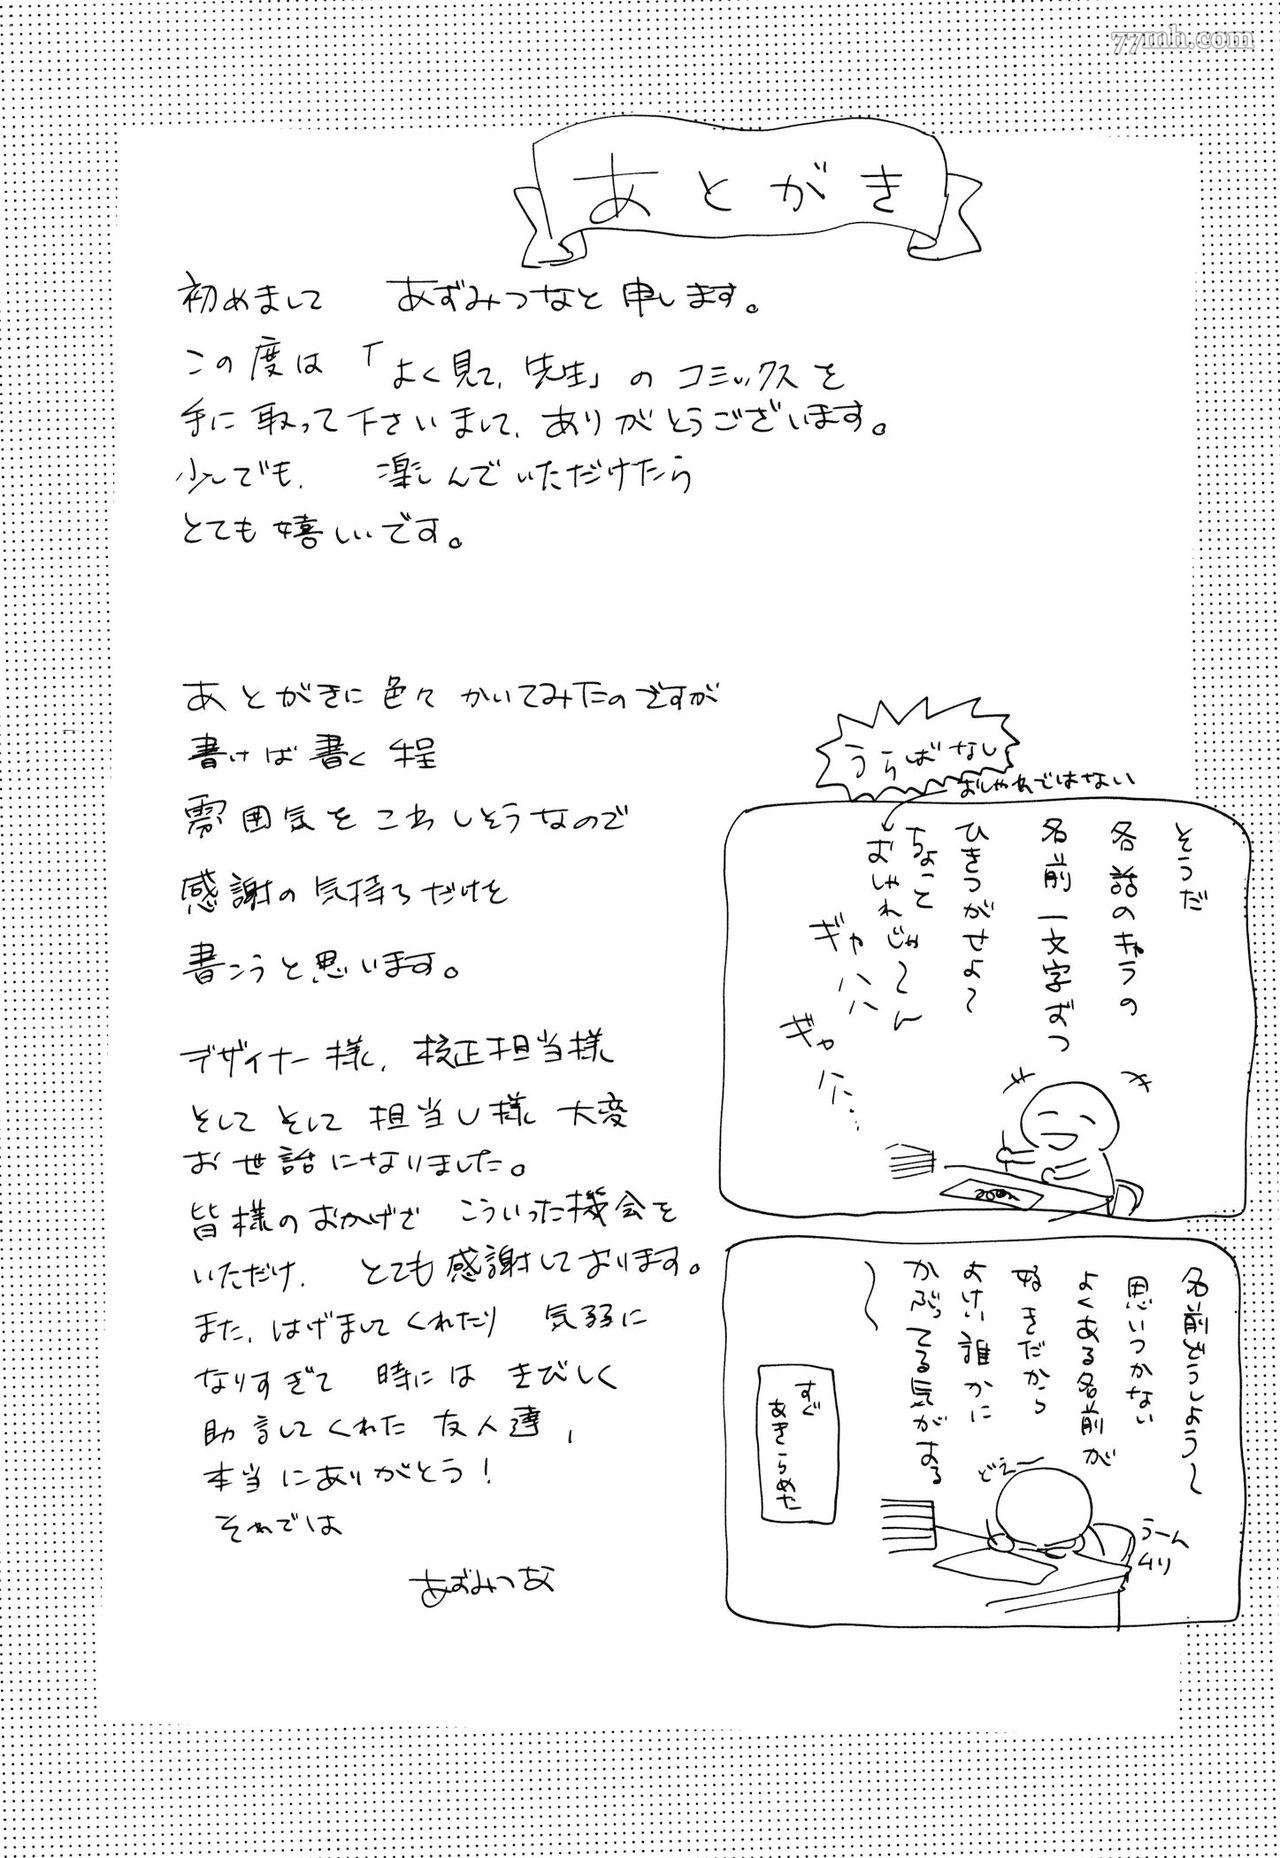 77mh.com
あとがき
初めまして あずみつなと申します。
この度は「よく見て、先生」のコミックスを
手に取って下さいまして、ありがとうございます。
少しでも、楽しんでいただけたら
とても嬉しいです。
あとがきに色々かいてみたのですが
書けば書く程
雰囲気をこわしそうなので
感謝の気持ちだけを
書こうと思います。
デザイナー様、校正担当様
そして そして 担当U様 大変
お世話になりました。
皆様のおかげで こういった機会を
いただけ、とても感謝しております。
また、はげましてくれたり 気弱に
なりすぎて 時には きびしく
助言してくれた 友人達、
本当にありがとう!
それでは
あずみつな
うらばなし
おしゃれではない
そうだ
各話のキャラの
名前一文字ずつ
ひきつがせよ〜
ちょっと
おしゃれじゃ〜ん
ギャハハハ
ギャハハ…
名前どうしよう〜
思いつかない
よくある名前が
好きだから
よけい誰かに
かぶってる気がある
〜
どえ〜
うーん
ムリ
すぐ
あきらめた